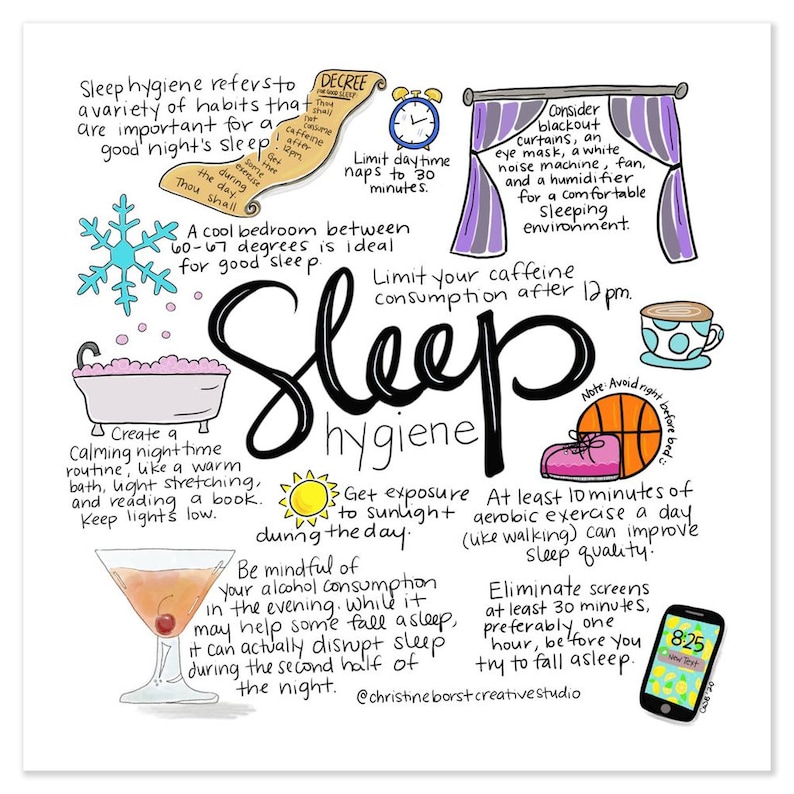 Sleep hygiene refers to
a variety of habits that
are important for a
good night's sleep!
DECREE
FOR GOOD SLEEP:
Thou
shall
not
consume
caffeine
after
12pm.
Get
thee
some
exercise
during
the day.
Thou shall
Limit daytime
naps to 30
minutes.
Consider
blackout
curtains, an
eye mask, a white
noise machine, fan,
and a humidifier
for a comfortable
sleeping
environment.
A cool bedroom between
60-67 degrees is ideal
for good sleep.
Limit your caffeine
consumption after 12pm.
Sleep
hygiene
Note: Avoid right before bed :)
Create a
calming nighttime
routine, like a warm
bath, light stretching,
and reading a book.
Keep lights low.
Get exposure
to sunlight
during the day.
At least 10 minutes of
aerobic exercise a day
(like walking) can improve
sleep quality.
Be mindful of
your alcohol consumption
in the evening. While it
may help some fall asleep,
it can actually disrupt sleep
during the second half of
the night.
Eliminate screens
at least 30 minutes,
preferably one
hour, before you
try to fall asleep.
8:25
New Text
@christineborstcreativestudio